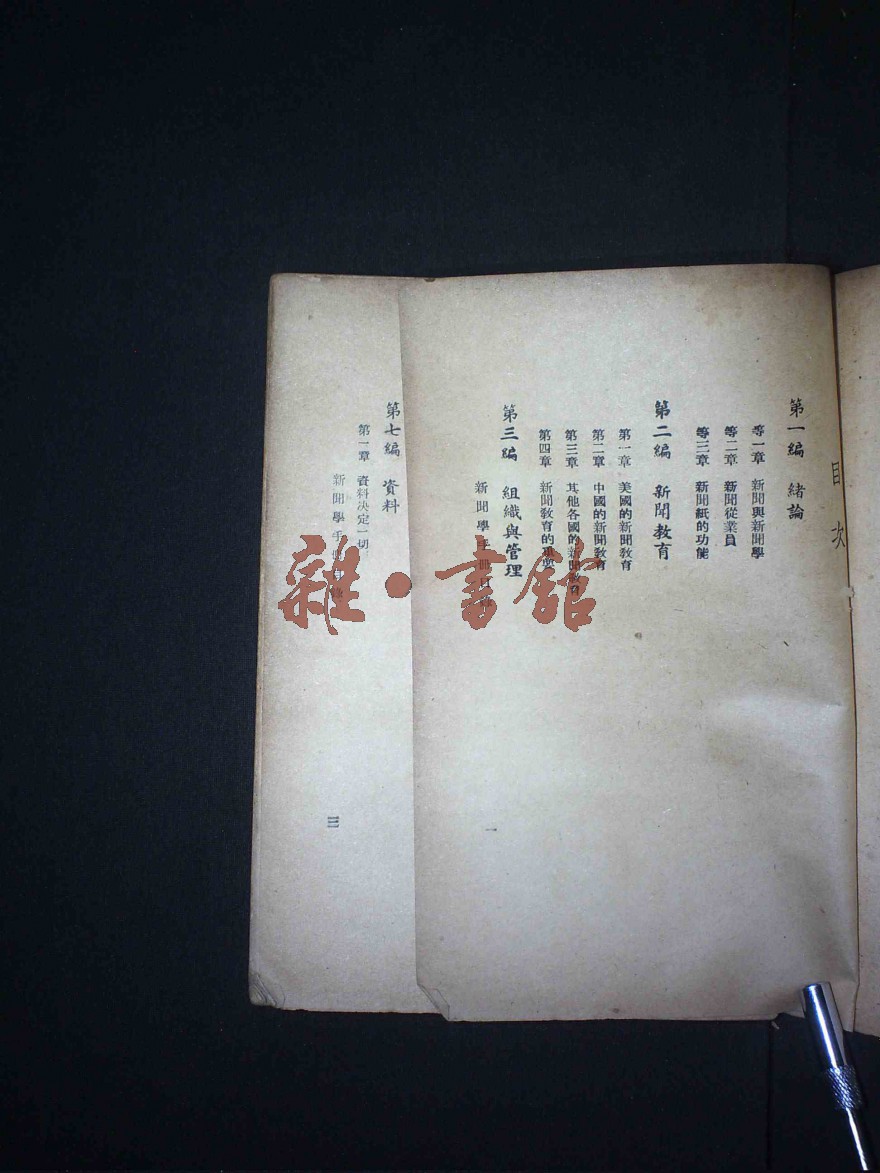 目次
第一編 緒論
等一章 新聞與新聞學
等二章 新聞從業員
等三章 新聞紙的功能
第二編 新聞教育
第一章 美國的新聞教育
第二章 中國的新聞教育
第三章 其他各國的新聞教育
第四章 新聞教育的重要
第三編 組織與管理
新聞學手冊目錄
一
第七編 資料
第一章 資料決定一切
新聞學手冊目錄
三
雜·書館